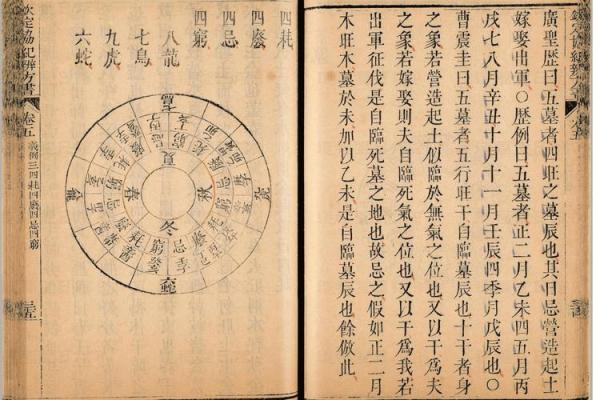 廣聖歷曰五墓者四旺之墓辰也其日忌營造起土
嫁娶出軍○歷例曰五墓者正二月乙未四五月丙
戌七八月辛丑十月十一月壬辰四季月戊辰也○
曹震圭曰五墓者五行旺干自臨墓辰也十干者身
之象若營造起土似臨於無氣之位也又以干爲夫
之象若嫁娶則夫自臨死氣之位也又以干爲我若
出軍征伐是自臨死墓之地也故忌之假如正二月
木旺木墓於未加以乙未是自臨墓辰也餘倣此
四耗
四廢
四忌
四窮
八龍
七鳥
九虎
六蛇
夏
秋
冬
欽定協紀辨方書
卷五
義例三四耗四廢四忌四窮